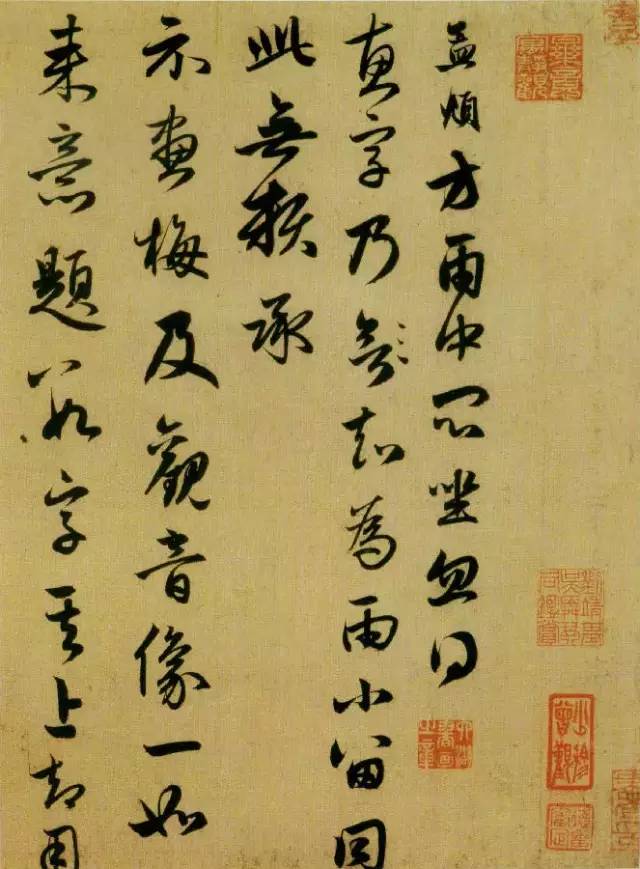 孟頫方雨中悶坐忽得
惠字乃知為雨小留同
此無賴承
示畫梅及觀音像一如
來意題數字其上却用